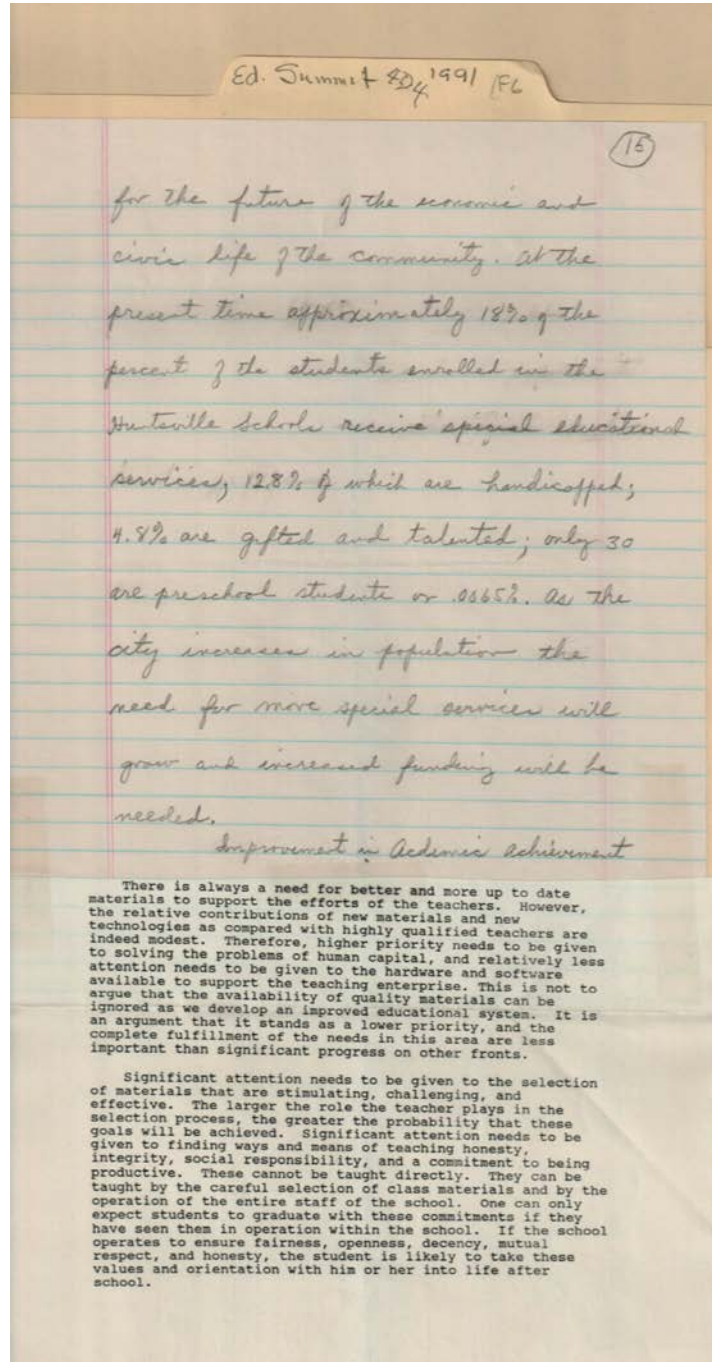 Ed. Summit 1991
15
for the future of the economic and
civic life of the community. At the
present time approximately 18% of the
percent of the students enrolled in the
Huntsville Schools receive special educational
services; 12.8% of which are handicapped;
4.8% are gifted and talented; only 30
are preschool students or .0065%. As the
city increases in population the
need for more special services will
grow and increased funding will be
needed.
Improvement in Acdemic Achievement
There is always a need for better and more up to date
materials to support the efforts of the teachers. However,
the relative contributions of new materials and new
technologies as compared with highly qualified teachers are
indeed modest. Therefore, higher priority needs to be given
to solving the problems of human capital, and relatively less
attention needs to be given to the hardware and software
available to support the teaching enterprise. This is not to
argue that the availability of quality materials can be
ignored as we develop an improved educational system. It is
an argument that it stands as a lower priority, and the
complete fulfillment of the needs in this area are less
important than significant progress on other fronts.
Significant attention needs to be given to the selection
of materials that are stimulating, challenging, and
effective. The larger the role the teacher plays in the
selection process, the greater the probability that these
goals will be achieved. Significant attention needs to be
given to finding ways and means of teaching honesty,
integrity, social responsibility, and a commitment to being
productive. These cannot be taught directly. They can be
taught by the careful selection of class materials and by the
operation of the entire staff of the school. One can only
expect students to graduate with these commitments if they
have seen them in operation within the school. If the school
operates to ensure fairness, openness, decency, mutual
respect, and honesty, the student is likely to take these
values and orientation with him or her into life after
school.